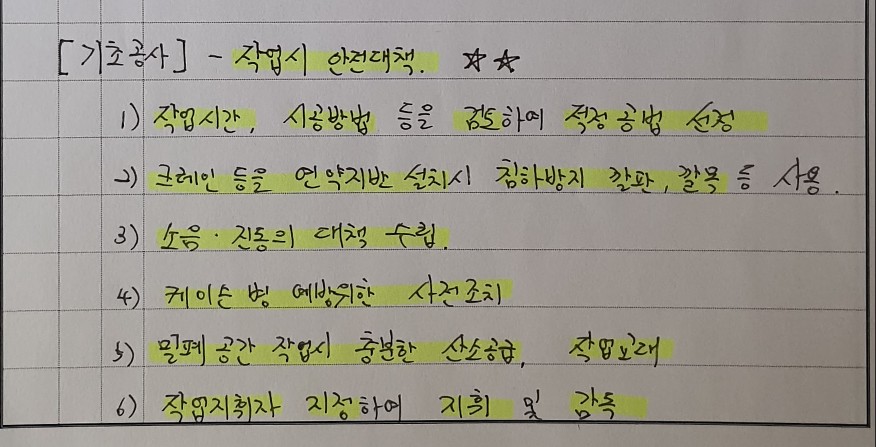 [기초공사] - 작업시 안전대책. ☆☆
1) 작업시간, 시공방법 등을 검토하여 적정공법 선정
2) 크레인 등을 연약지반 설치시 침하방지 깔판, 깔목 등 사용.
3) 소음·진동의 대책 수립.
4) 케이슨 병 예방위한 사전조치
5) 밀폐공간 작업시 충분한 산소공급, 작업교대
6) 작업지휘자 지정하여 지휘 및 감독